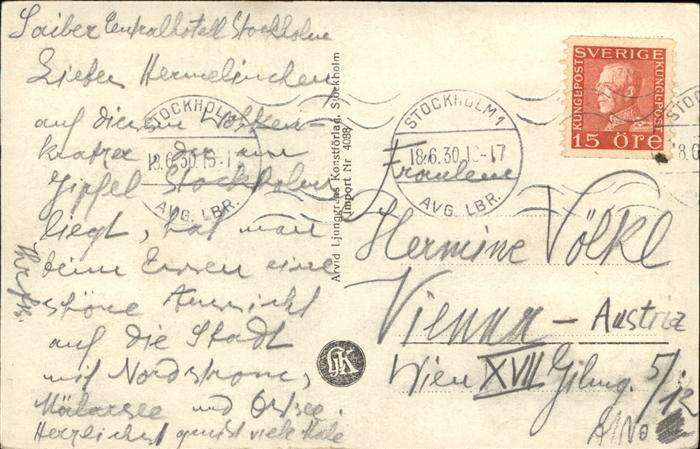 Saiber Centralhotell Stockholm
Lieber Hermelinchen
auf diesem Wolken-
kratzer der am
Gipfel Stockholms
liegt, hat man
beim Essen eine
schöne Aussicht
auf die Stadt
mit Nordstrom,
Mälarsee und Ostsee.
Herzlichst grüsst viele Male
Arvid Ljunggrens Konstförlag, Stockholm
Import Nr 4088
STOCKHOLM
18.6.30 15-17
AVG. LBR.
STOCKHOLM 1
18.6.30 1 -17
AVG. LBR.
SVERIGE
KUNGL POST
KUNGL POST
15 ÖRE
8.6
Fräulein
Hermine Völkl
Vienna - Austria
Wien XVII Gilmg. 5/12